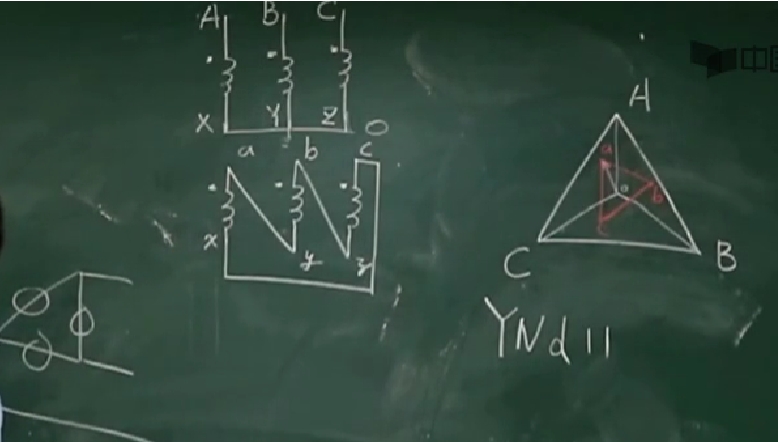 A B C
X Y Z O
a b c
x y z
A
a
o b
c
C B
YNd11
中国